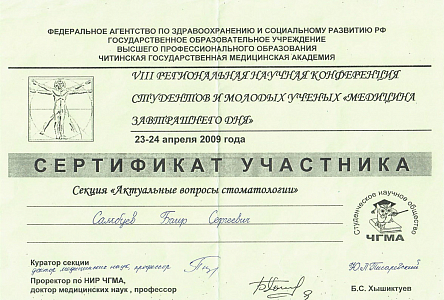 ФЕДЕРАЛЬНОЕ АГЕНТСТВО ПО ЗДРАВООХРАНЕНИЮ И СОЦИАЛЬНОМУ РАЗВИТИЮ РФ
ГОСУДАРСТВЕННОЕ ОБРАЗОВАТЕЛЬНОЕ УЧРЕЖДЕНИЕ
ВЫСШЕГО ПРОФЕССИОНАЛЬНОГО ОБРАЗОВАНИЯ
ЧИТИНСКАЯ ГОСУДАРСТВЕННАЯ МЕДИЦИНСКАЯ АКАДЕМИЯ
VIII РЕГИОНАЛЬНАЯ НАУЧНАЯ КОНФЕРЕНЦИЯ
СТУДЕНТОВ И МОЛОДЫХ УЧЕНЫХ «МЕДИЦИНА
ЗАВТРАШНЕГО ДНЯ»
23-24 апреля 2009 года
СЕРТИФИКАТ УЧАСТНИКА
Секция «Актуальные вопросы стоматологии»
Самбуев Баир Сергеевич
Студенческое научное общество
ЧГМА
Куратор секции
доктор медицинских наук, профессор Ю.Л. Писаревский
Проректор по НИР ЧГМА,
доктор медицинских наук , профессор Б.С. Хышиктуев